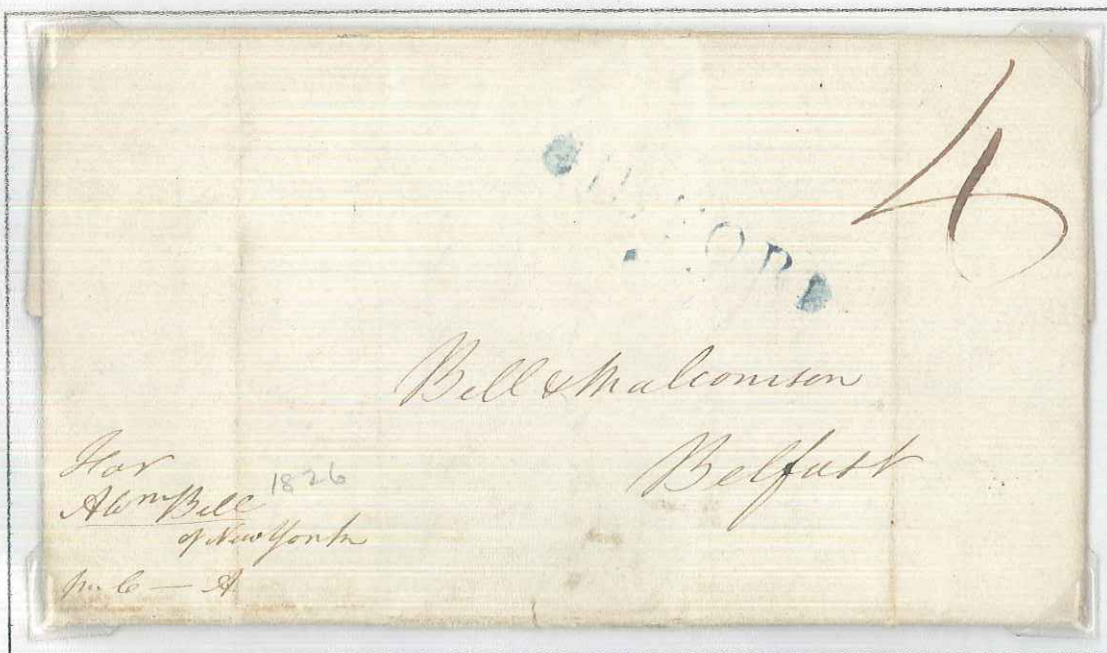 4
Bell & Malcomson
Belfast
For
Abm Bell
1826
of New York